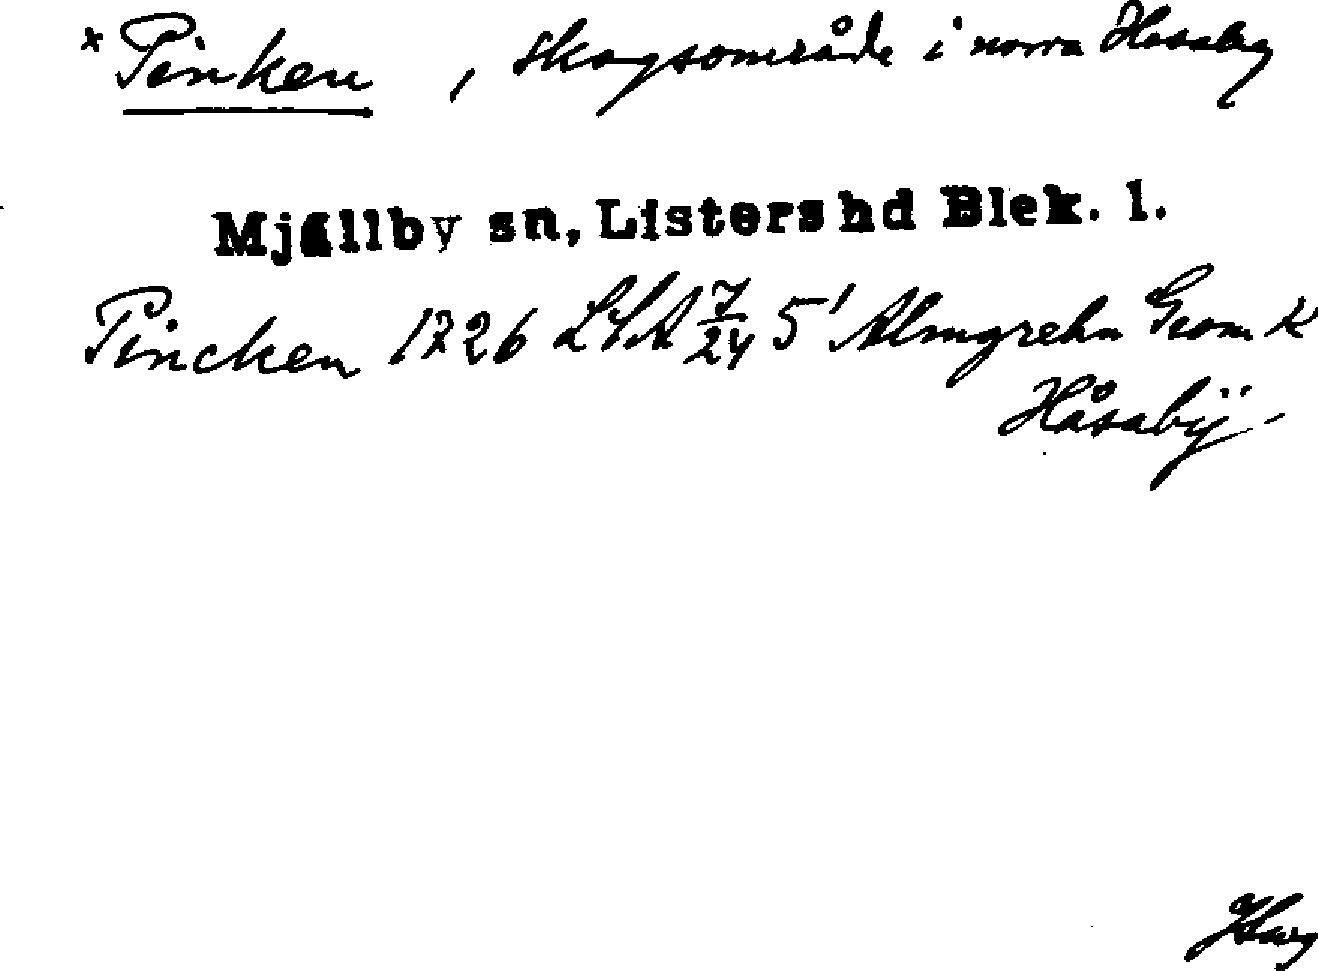 * Pinken, skogsområde i norra Hosaby
Mjällby sn, Listers hd Blek. l.
Pincken 1726 LSA 7/24 5¹ Almgrehn Geom K
Håsabÿ